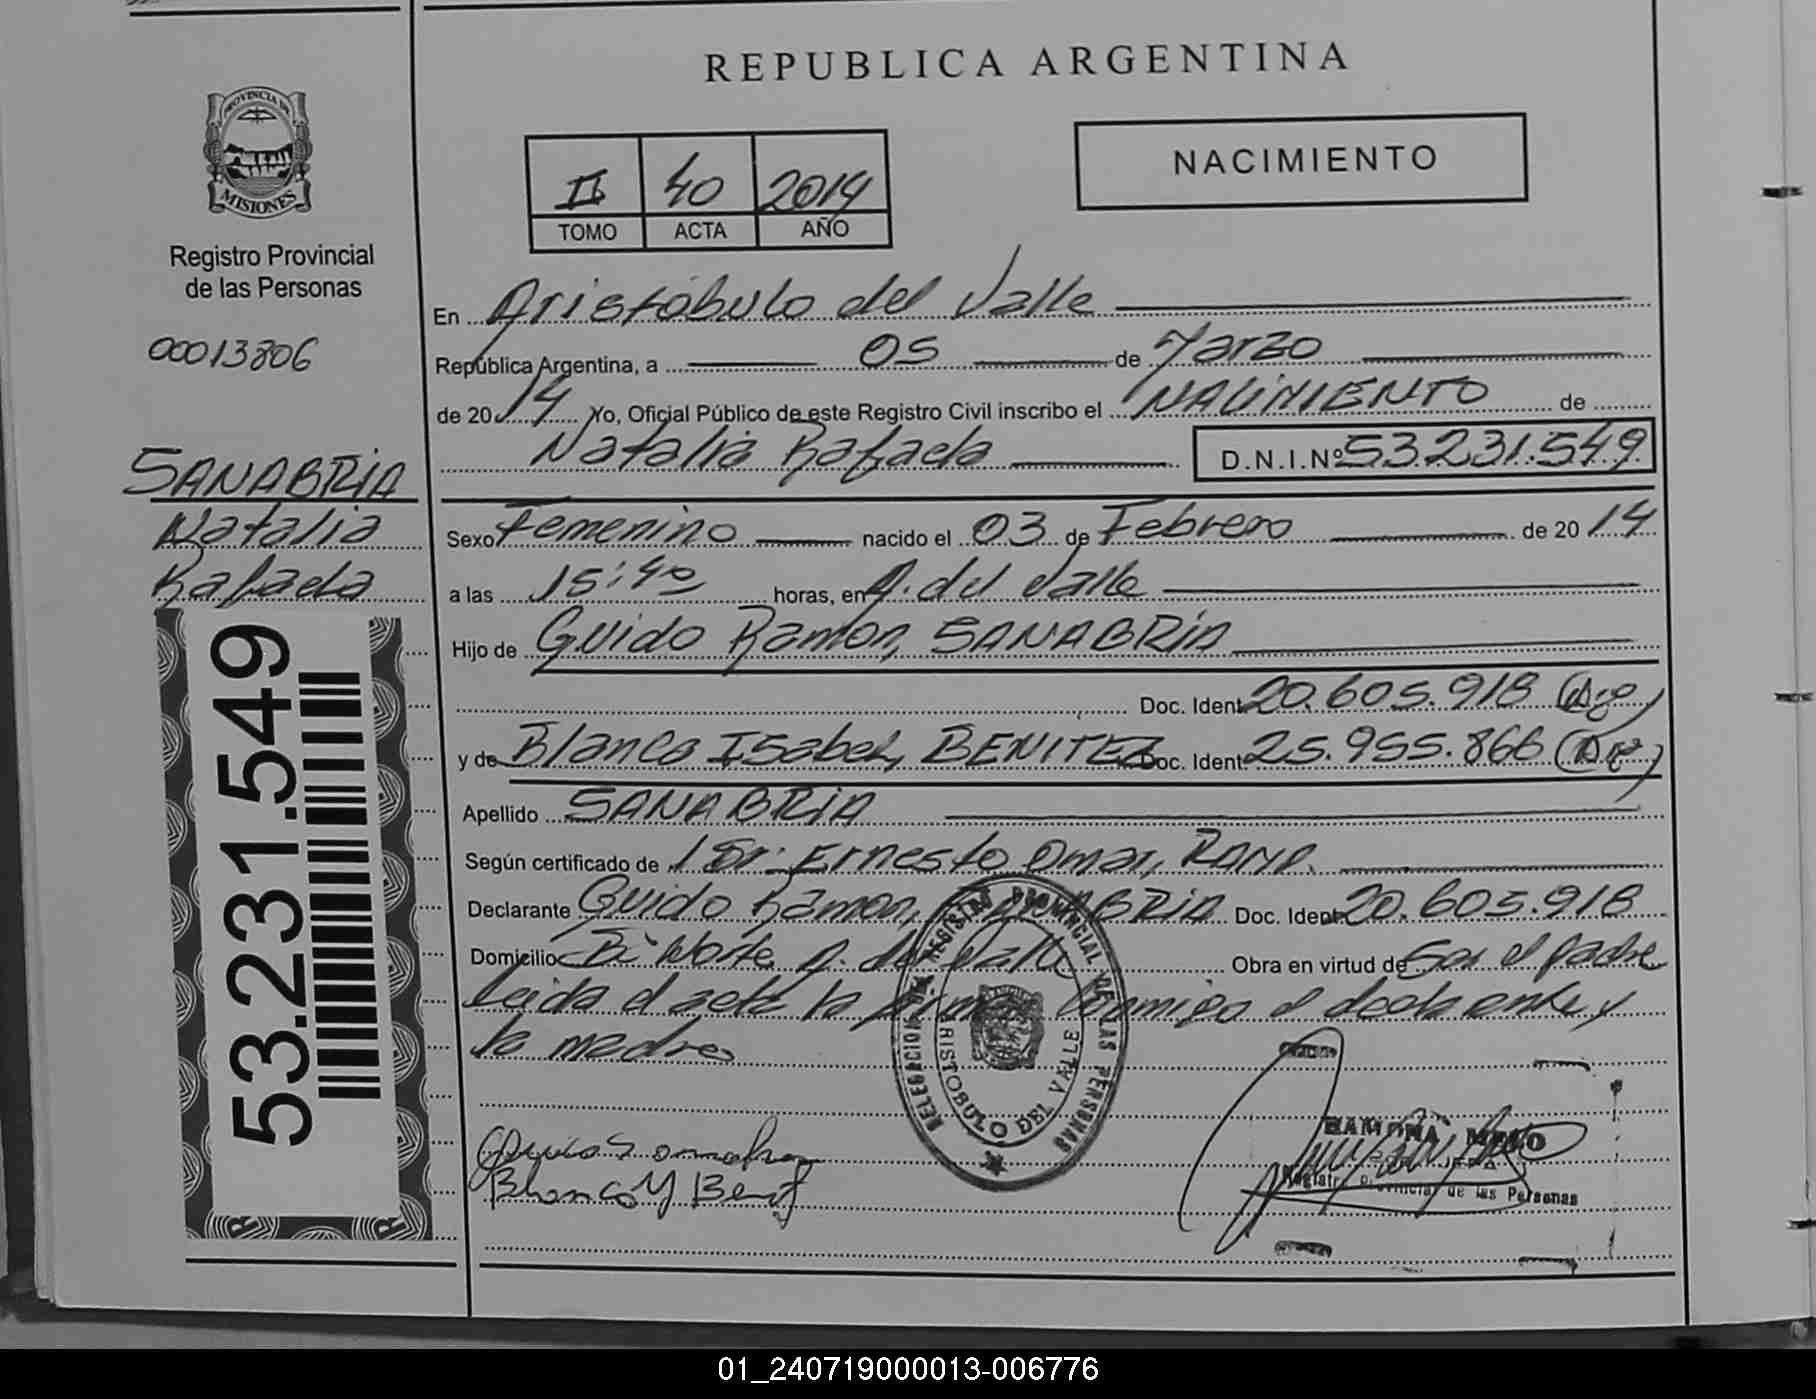 REPUBLICA ARGENTINA
PROVINCIA DE
MISIONES
Registro Provincial
de las Personas
00013806
SANABRIA
Natalia
Rafaela
53.231.549
II 40 2014
TOMO ACTA AÑO
NACIMIENTO
En Aristóbulo del Valle
República Argentina, a 05 de Marzo
de 20 14 Yo, Oficial Público de este Registro Civil inscribo el NACIMIENTO de
Natalia Rafaela D.N.I.Nº 53.231.549
Sexo Femenino nacido el 03 de Febrero de 20 14
a las 15:40 horas, en A. del Valle
Hijo de Guido Ramon, SANABRIA
Doc. Ident 20.605.918 (Arg)
y de Blanca Isabel, BENITEZ Doc. Ident 25.955.866 (Arg)
Apellido SANABRIA
Según certificado de Dr. Ernesto Omar,
Declarante Guido Ramon, SANABRIA Doc. Ident 20.605.918
Domicilio Bº Norte A. del Valle Obra en virtud de Ser el padre
Leida el acta la firma conmigo el declarante y
la madre
DELEGACION DEL REGISTRO PROVINCIAL DE LAS PERSONAS
ARISTOBULO DEL VALLE
Blanca Y Benit
RAMONA MELO
Registro Provincial de las Personas
01_240719000013-006776